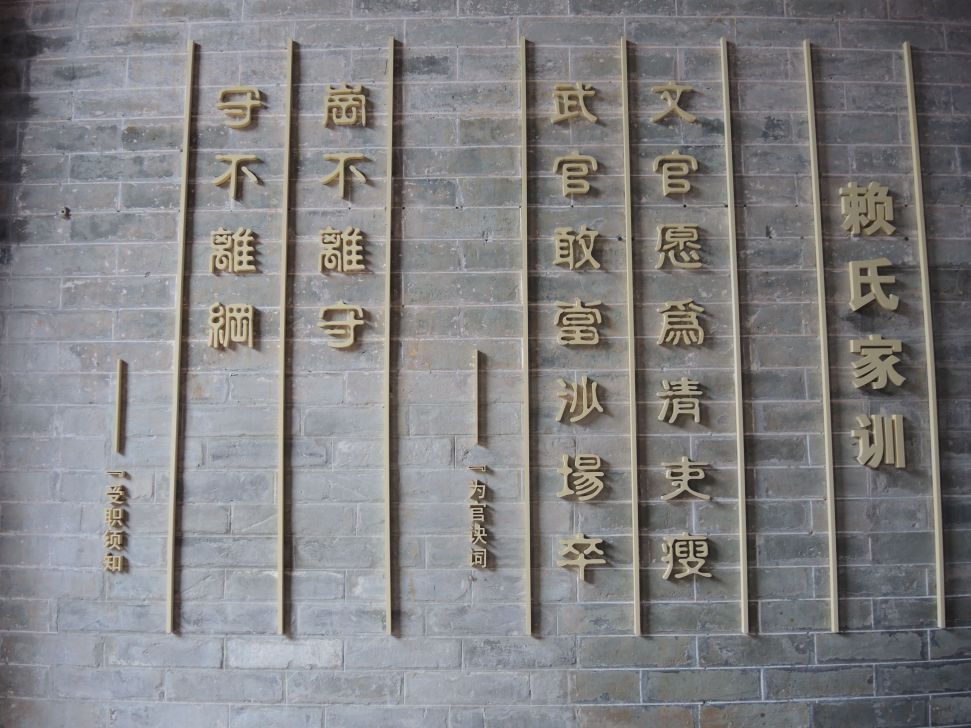 赖氏家训
文官愿爲清吏瘦
武官敢當沙場卒
『为官决词
崗不離守
守不離綱
『受职须知